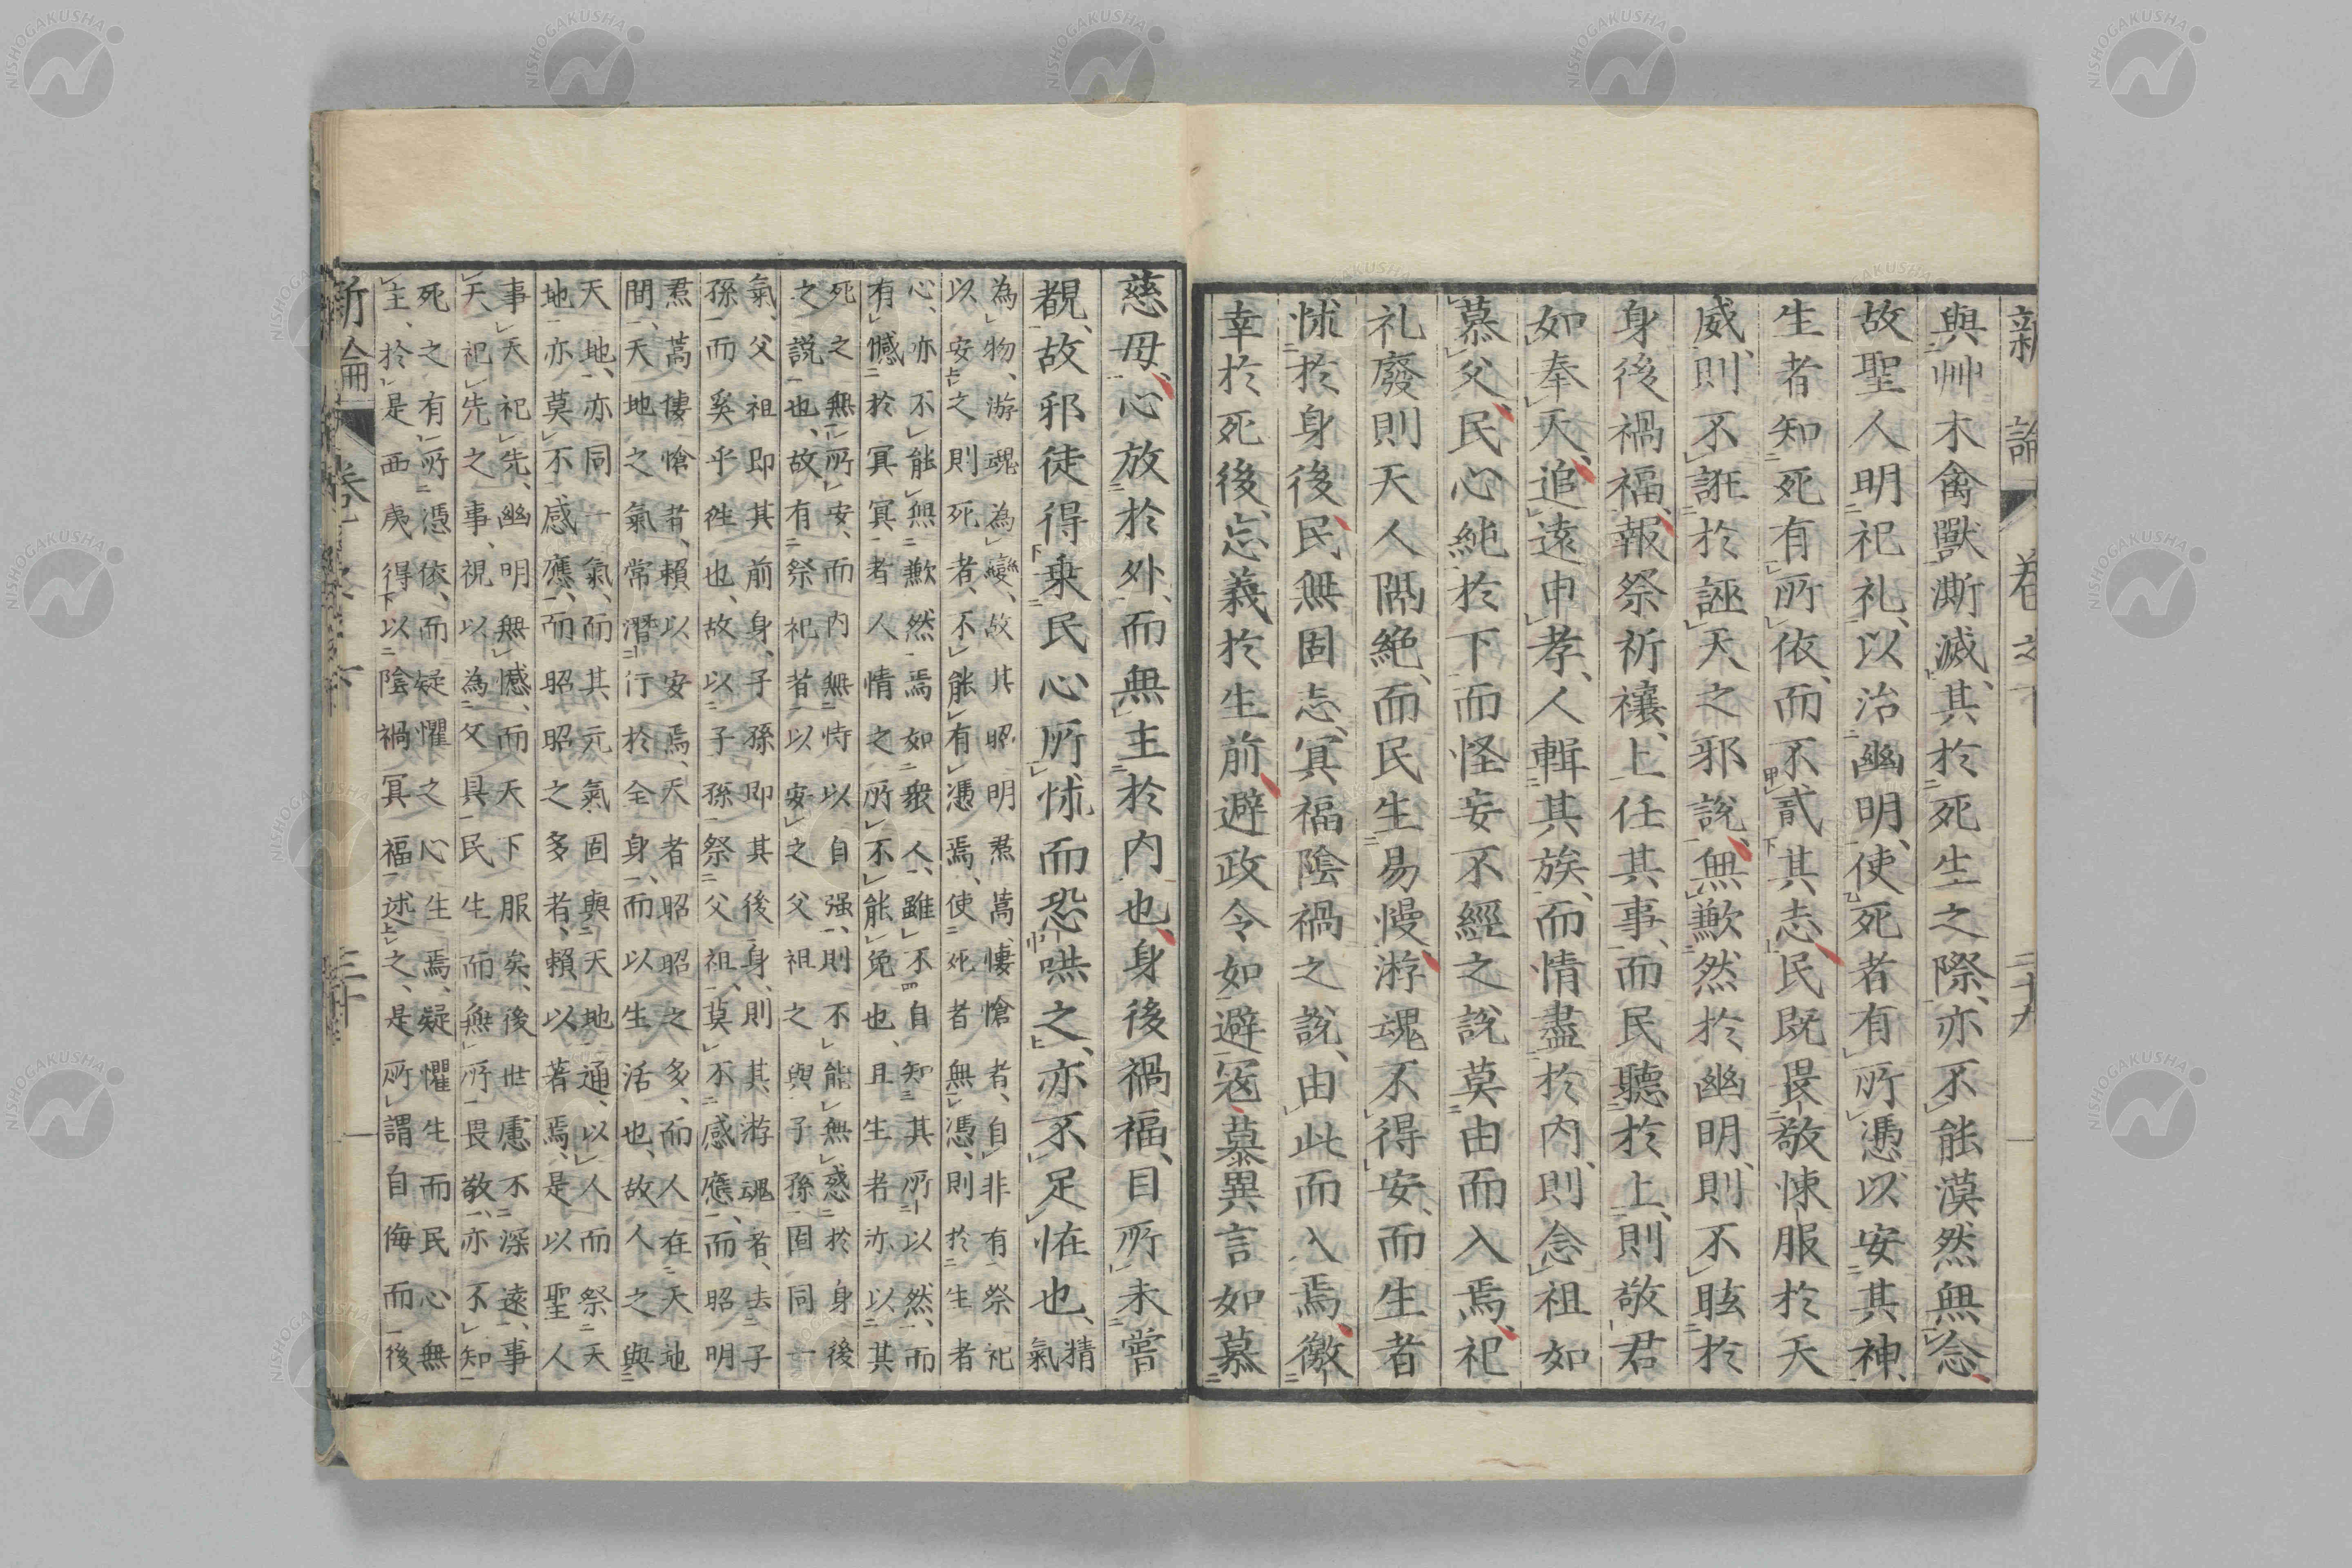 新論 卷之下 二十九
與艸木禽獸澌滅其於死生之際亦不能漠然無念
故聖人明祀礼以治幽明使死者有所憑以安其神
生者知死有所依而不貳其志民既畏敬悚服於天
威則不誑於誣天之邪說無歉然於幽明則不眩於
身後禍福報祭祈禳上任其事而民聽於上則敬君
如奉天追遠申孝人輯其族而情盡於内則念祖如
慕父民心純於下而怪妄不經之說莫由而入焉祀
礼廢則天人隔絶而民生易慢游魂不得安而生者
怵於身後民無固志冥福陰禍之說由此而入焉徼
幸於死後忘義於生前避政令如避寇慕異言如慕
慈母心放於外而無主於内也身後禍福目所未嘗
覩故邪徒得乗民心所怵而恐㗢之亦不足怪也精氣
為物游魂為變故其昭明焄蒿悽愴者自非有祭祀
以安之則死者不能有憑焉使死者無憑則於生者
心亦不能無歉然焉如衆人雖不自知其所以然而
有憾於冥冥者人情之所不能免也且生者亦以其
死之無所安而内無恃以自强則不能無惑於身後
之說也故有祭祀者以安之父祖之與子孫固同一
氣父祖即其前身子孫即其後身則其游魂者去子
孫而奚乎徃也故以子孫祭父祖莫不感應而昭明
焄蒿悽愴者賴以安焉天者昭昭之多而人在天地
間天地之氣常潛行於全身而以生活也故人之與
天地亦同一氣而其元氣固與天地通以人而祭天
地亦莫不感應而昭昭之多者賴以著焉是以聖人
事天祀先幽明無憾而天下服矣後世慮不深遠事
天祀先之事視以為父具民生而無所畏敬亦不知
死之有所憑依而疑懼之心生焉疑懼生而民心無
主於是西夷得以陰禍冥福述之是所謂自侮而後
新論 卷之下 三十